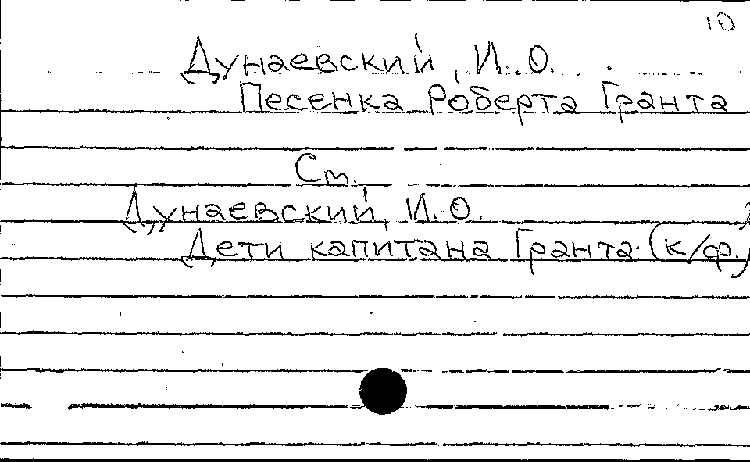 10
Дунаевский, И.О.
Песенка Роберта Гранта
См.
Дунаевский, И.О.
Дети капитана Гранта (к/ф.)